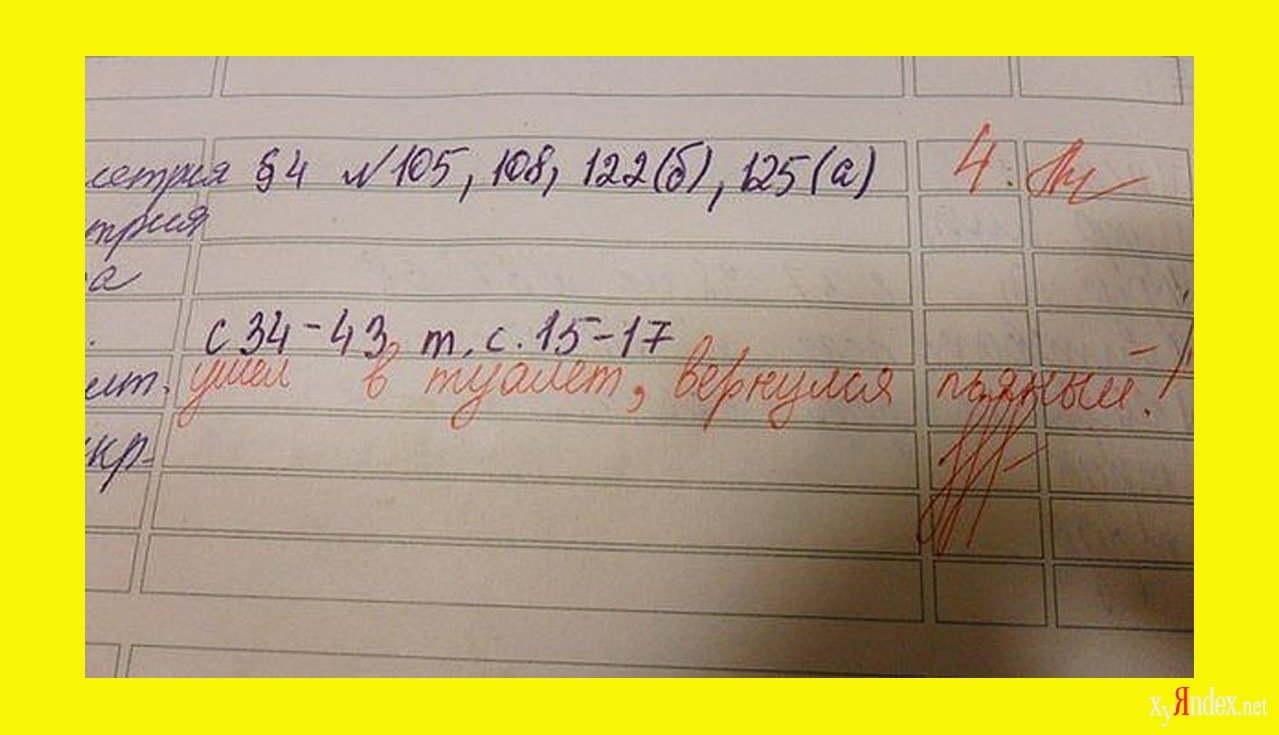 сетрия §4 №105, 108, 122(б), 125(а) 4
трия
ра
с 34-43, т. с. 15-17
ушел в туалет, вернулся пьяный!
кр-
XyЯndex.net